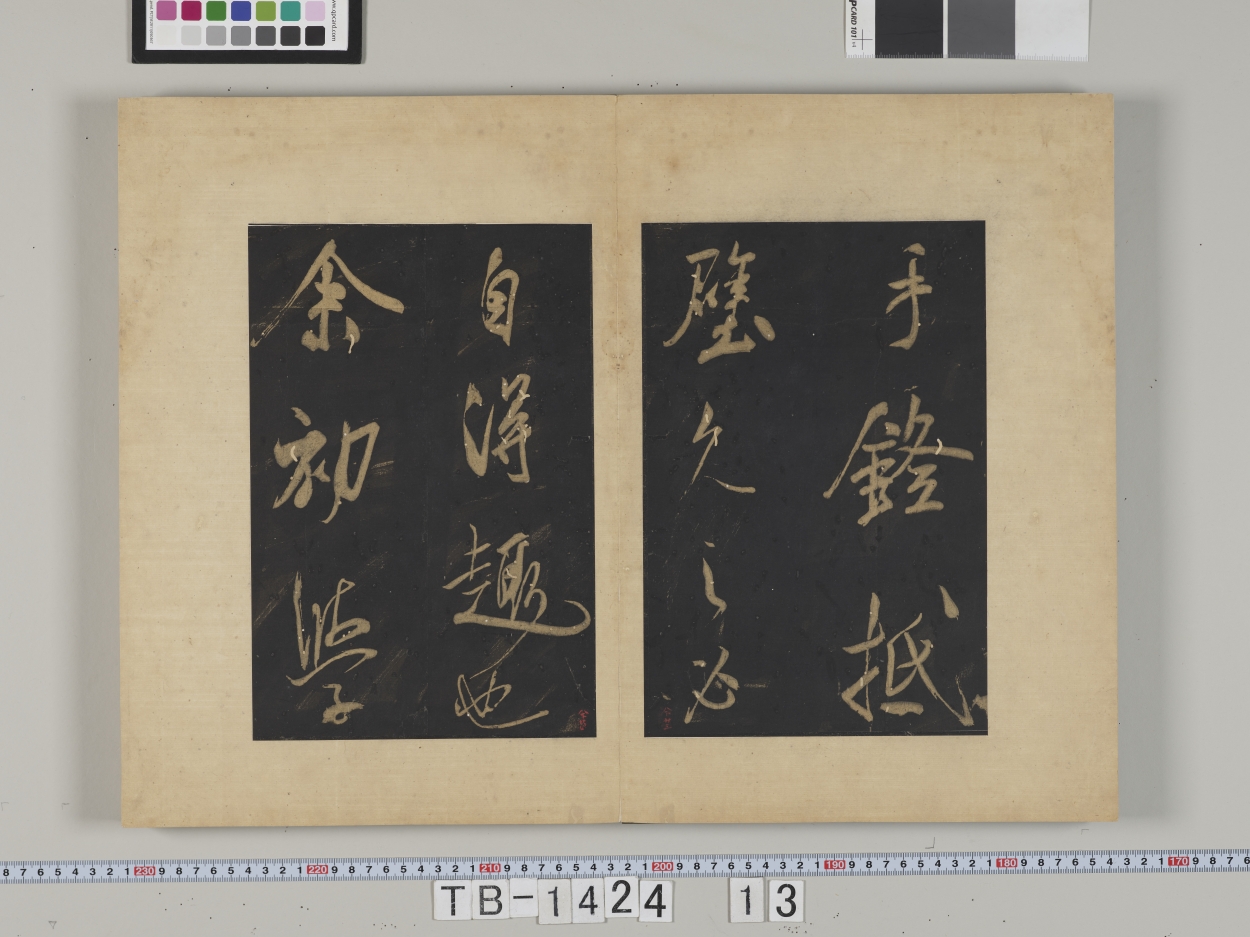 手鐙抵
壁久之必
自得趣也
余初學
www.qpcard.com
PCARD 101
8 7 6 5 4 3 2 1 230 9 8 7 6 5 4 3 2 1 220 9 8 7 6 5 4 3 2 1 210 9 8 7 6 5 4 3 2 1 200 9 8 7 6 5 4 3 2 1 190 9 8 7 6 5 4 3 2 1 180 9 8 7 6 5 4 3 2 1 170 9 8 7 6
TB-1424 13